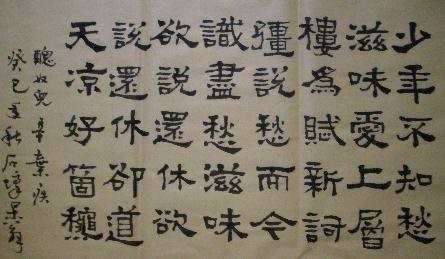 少年不知愁
滋味愛上層
樓爲賦新詞
彊說愁而今
識盡愁滋味
欲說還休欲
說還休卻道
天凉好箇穐
醜奴兒辛棄疾
癸巳年秋